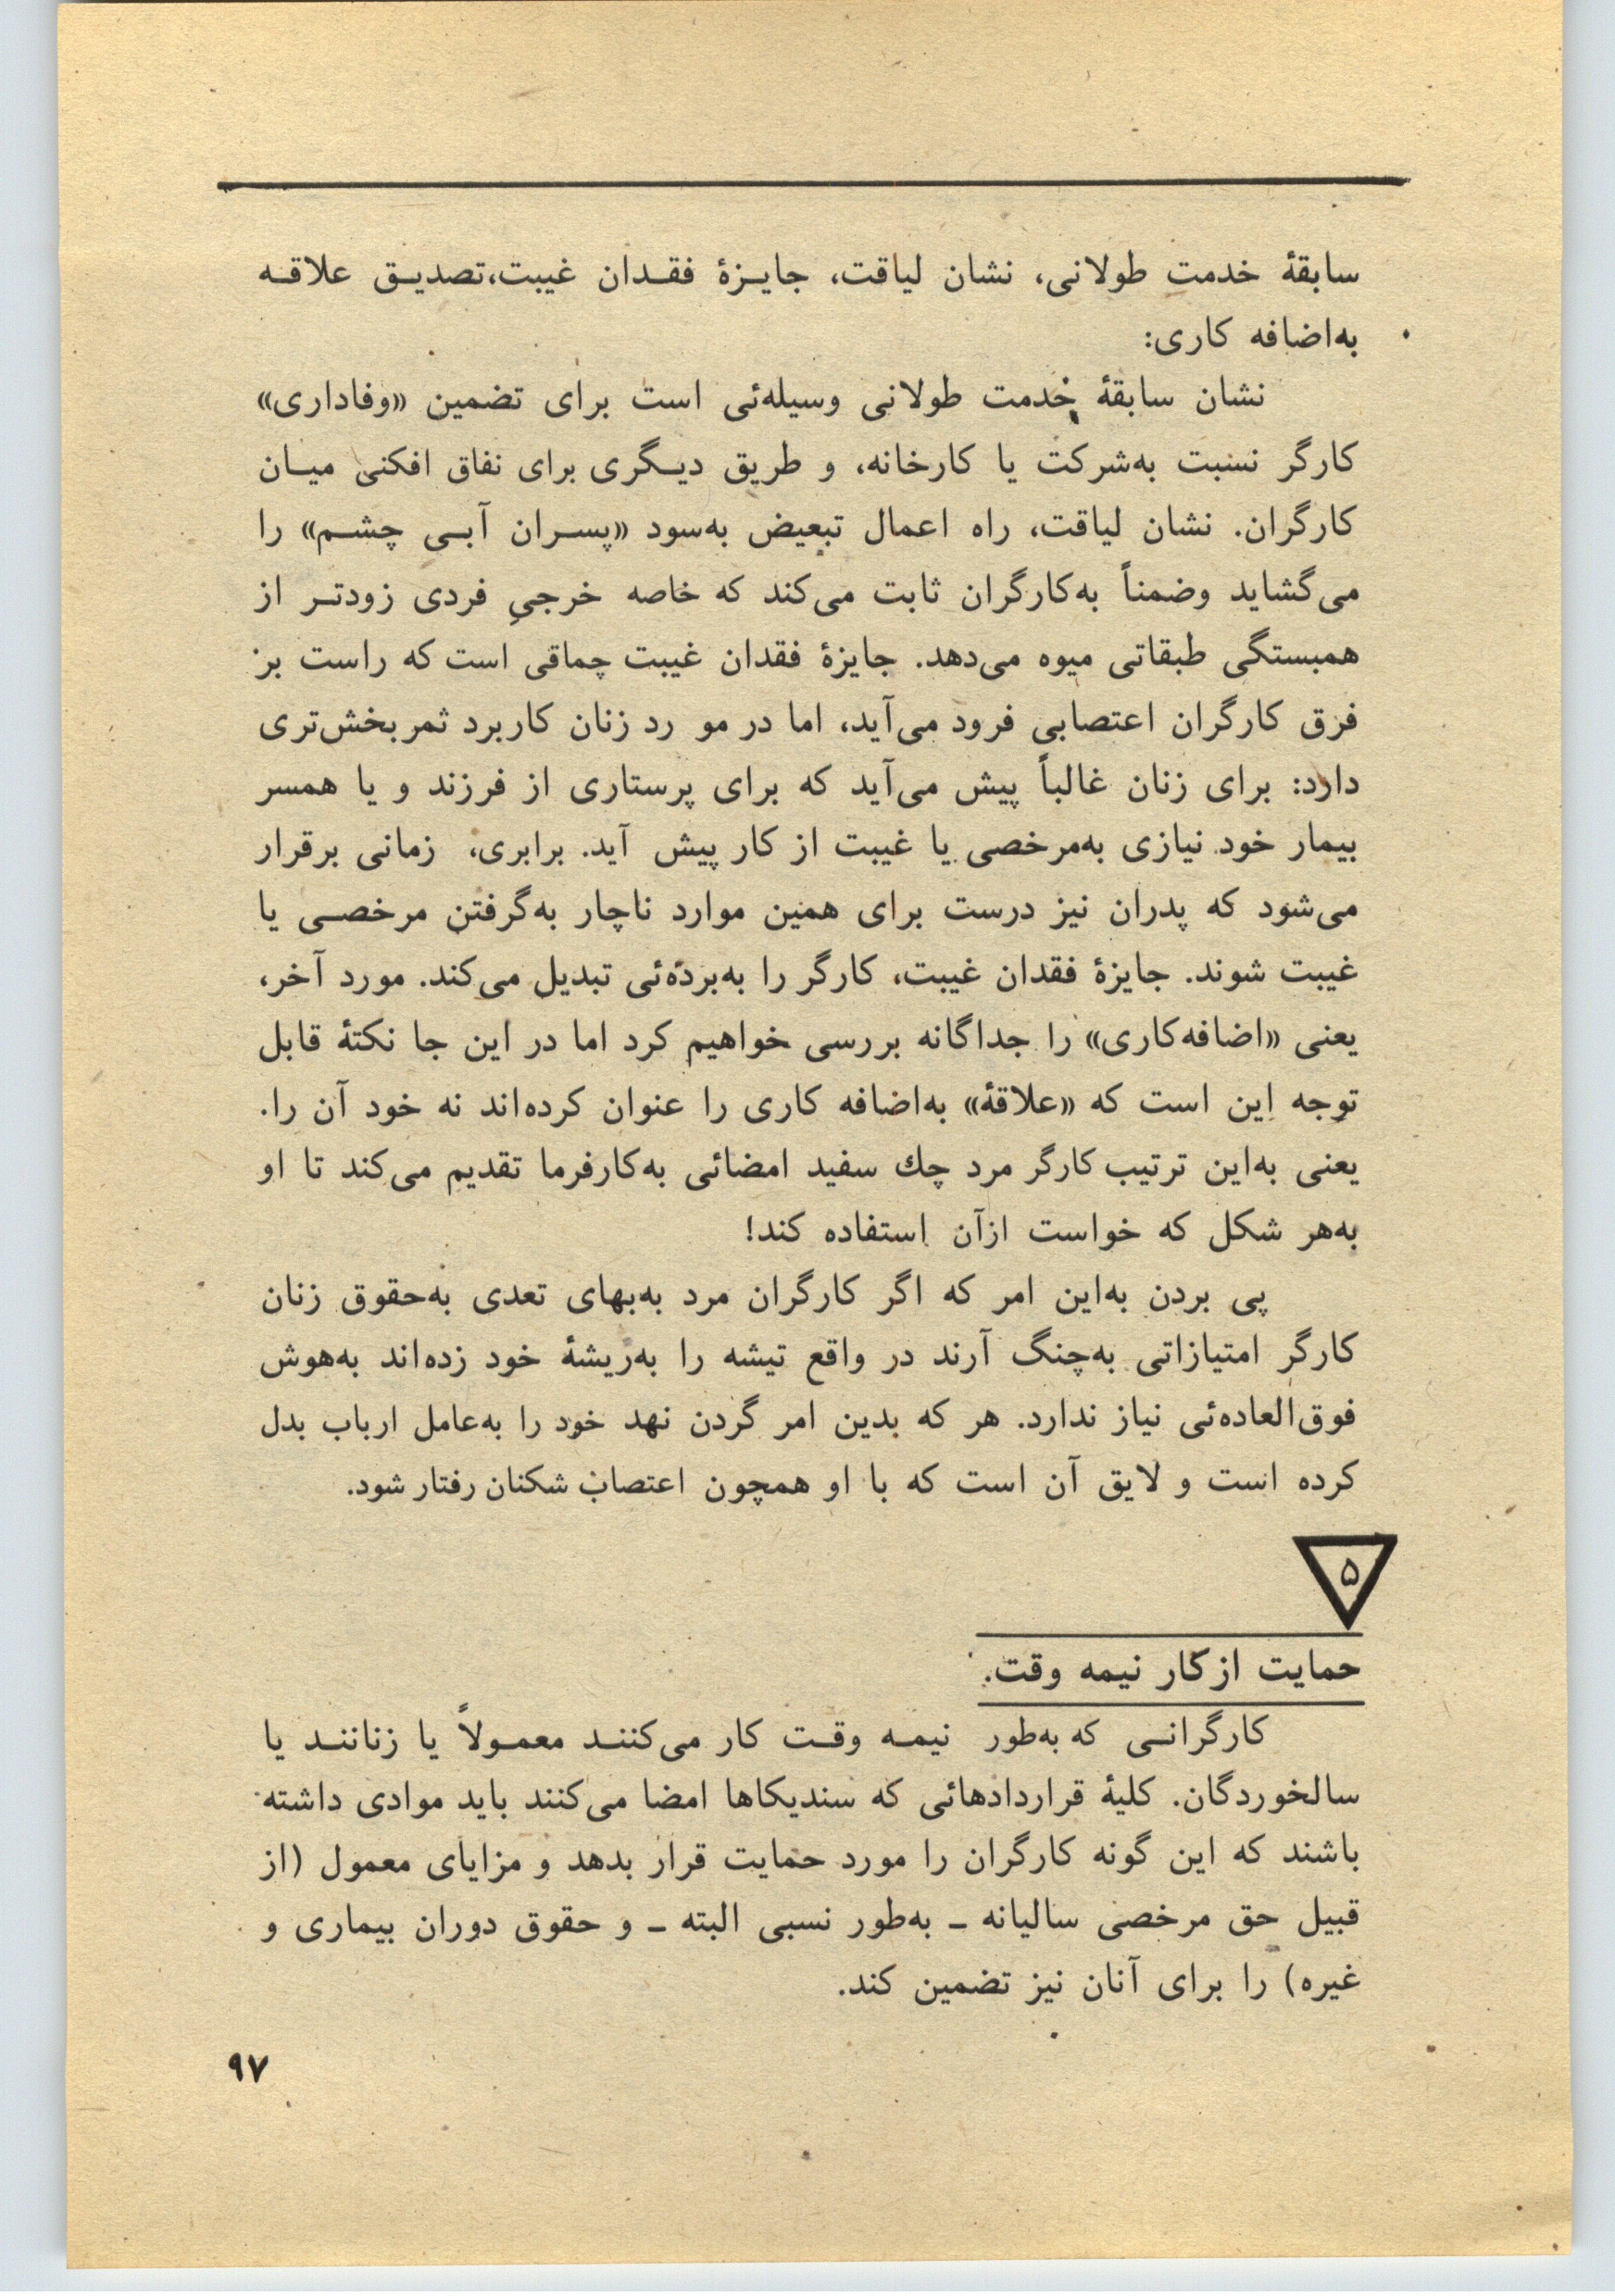 سابقهٔ خدمت طولانی، نشان لیاقت، جایـزهٔ فقـدان غیبت،تصدیـق علاقـه
به‌اضافه کاری:
نشان سابقهٔ خدمت طولانی وسیله‌ئی است برای تضمین «وفاداری»
کارگر نسبت به‌شرکت یا کارخانه، و طریق دیـگری برای نفاق افکنی میـان
کارگران. نشان لیاقت، راه اعمال تبعیض به‌سود «پسـران آبـی چشـم» را
می‌گشاید وضمناً به‌کارگران ثابت می‌کند که خاصه خرجیِ فردی زودتـر از
همبستگی طبقاتی میوه می‌دهد. جایزهٔ فقدان غیبت چماقی است که راست بر
فرق کارگران اعتصابی فرود می‌آید، اما در مو رد زنان کاربرد ثمربخش‌تری
دارد: برای زنان غالباً پیش می‌آید که برای پرستاری از فرزند و یا همسر
بیمار خود نیازی به‌مرخصی یا غیبت از کار پیش آید. برابری، زمانی برقرار
می‌شود که پدران نیز درست برای همین موارد ناچار به‌گرفتن مرخصـی یا
غیبت شوند. جایزهٔ فقدان غیبت، کارگر را به‌برده‌ئی تبدیل می‌کند. مورد آخر،
یعنی «اضافه‌کاری» را جداگانه بررسی خواهیم کرد اما در این جا نکتهٔ قابل
توجه این است که «علاقهٔ» به‌اضافه کاری را عنوان کرده‌اند نه خود آن را.
یعنی به‌این ترتیب کارگر مرد چك سفید امضائی به‌کارفرما تقدیم می‌کند تا او
به‌هر شکل که خواست ازآن استفاده کند!
پی بردن به‌این امر که اگر کارگران مرد به‌بهای تعدی به‌حقوق زنان
کارگر امتیازاتی به‌چنگ آرند در واقع تیشه را به‌ریشهٔ خود زده‌اند به‌هوش
فوق‌العاده‌ئی نیاز ندارد. هر که بدین امر گردن نهد خود را به‌عامل ارباب بدل
کرده است و لایق آن است که با او همچون اعتصاب شکنان رفتار شود.
۵
حمایت ازکار نیمه وقت.
کارگرانـی که به‌طور نیمـه وقـت کار می‌کننـد معمـولاً یا زناننـد یا
سالخوردگان. کلیهٔ قراردادهائی که سندیکاها امضا می‌کنند باید موادی داشته
باشند که این گونه کارگران را مورد حمایت قرار بدهد و مزایای معمول (از
قبیل حق مرخصی سالیانه ـ به‌طور نسبی البته ـ و حقوق دوران بیماری و
غیره) را برای آنان نیز تضمین کند.
۹۷